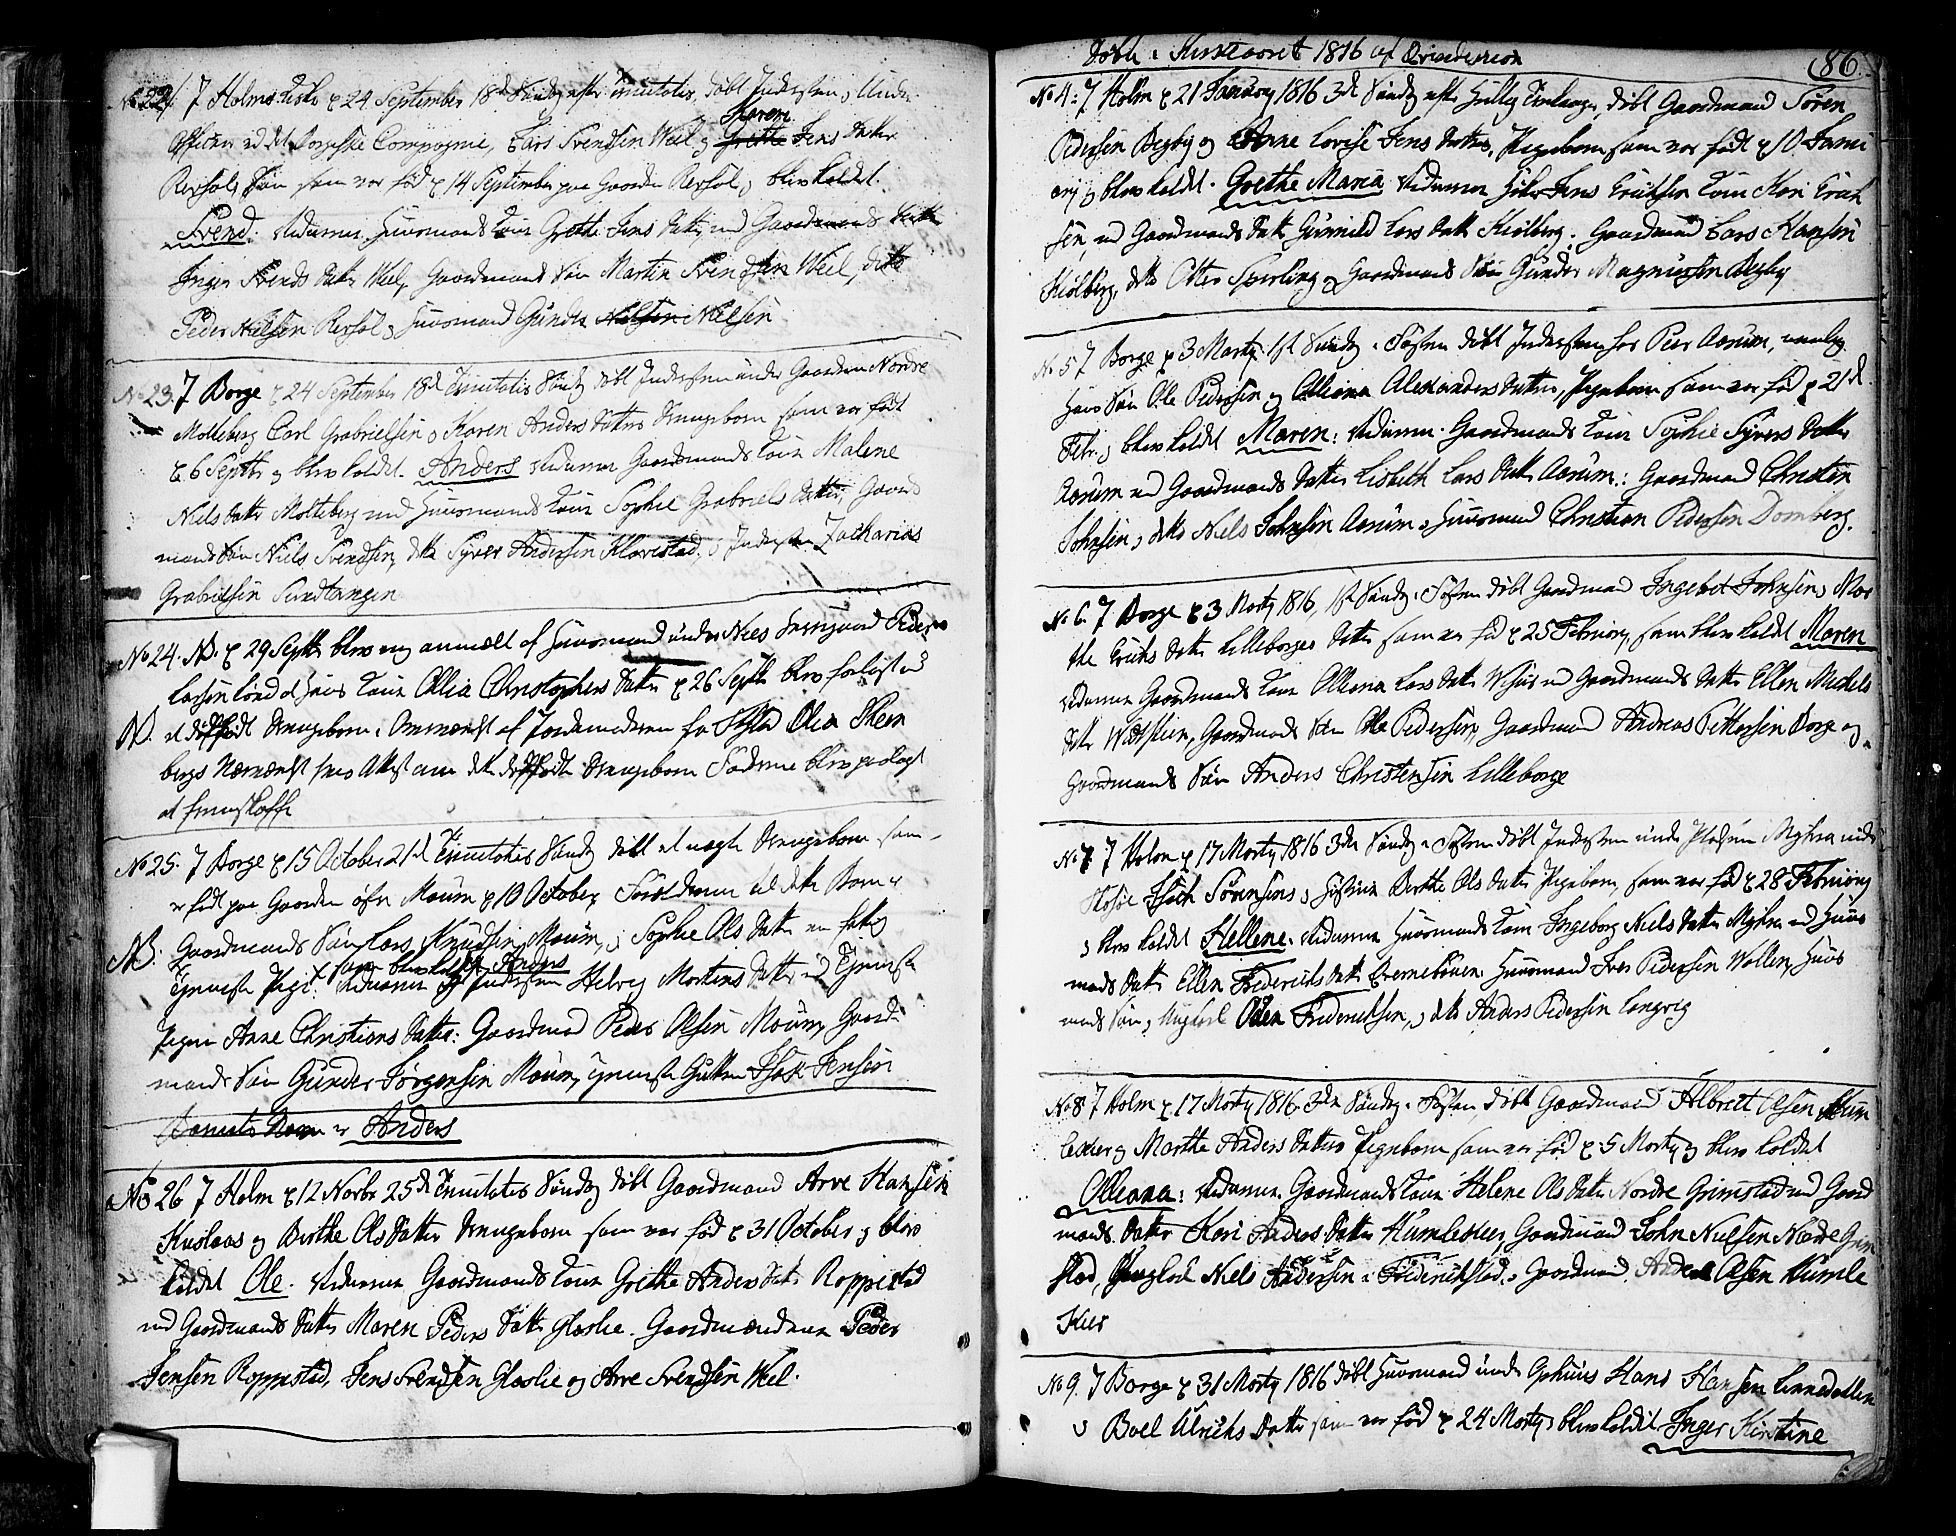 No 22. 7 Holms Kirke d 24 September 18de Søndag efter Trinitatis, døbt Indersten, Under
Officeer ved det Borgeske Compagnie, Lars Svendsen Weel og Karen Grethe Jens datter
Rersøl, Søn som var fød d 14 September paa Gaarden Rersøl, blev kaldet
Svend. Fadderne Huusmands Kone Grethe Jens datter ved Gaardmands datter
Inger Svends datter Weel, Gaardmands Søn Martin Svendsen Weel, ditto
Peder Nielsen Rersøl, Huusmand Gunder Nielsen Nielsen
No 23. 7 Borge d 24 September 18de Trinitatis Søndag døbt Indersten under Gaarden Nordre
Molteberg Carl Grabrielsen og Karen Anders datters Drengebarn som var født
d. 6 Septbr og blev kaldet Anders Fadderne Gaardmands Kone Malene
Niels datter Molteberg ved Huusmands Kone Sophie Grabriels datter, Gaard
mands Søn Niels Svendsen, ditto Syver Andersen Klavestad, Indersten Zacharias
Grabrielsen Sundtangen
No 24. NB. d 29 Septbr blev mig anmældt af Huusmand under Nies Peder
Larsen at hans Kone Ollia Christophers datter d 26 Septbr blev forløst med
NB. et dødfødt Drengebarn af Jordemoderen fra Olia Skem
bergs Attest om det dødfødte Drengebarn Faderne blev paalagt
at fremskaffe
No 25. 7 Borge d 15 October 21de Trinitatis Søndag døbt et uægte Drengebarn som
er født paa Gaarden øfre Moum d 10 October, Forældrene til dette Barn er
NB: Gaardmands Søn Lars Knudsen Moum, Sophie Ols datter
som blev kaldet Anders
Tjeneste Pige: Fadderne Indersten Helvig Mortens datter ved Tjeneste
Pigen Anne Christians datter: Gaardmand Peder Olsen Moum, Gaard
mands Søn Gunder Jørgensen Moum, Tjeneste Gutten Isak Jensen
Barnets Navn er Anders
No 26 7 Holm d 12 Novbr 25de Trinitatis Søndag døbt Gaardmand Arve Hansen
Huslaas og Birthe Ols datter Drengebarn som var fød d 31 October og blev
kaldet Ole. Fadderne Gaardmands Kone Grethe Anders datr Roppestad
ved Gaardmands datter Maren Peders datter Glaslie. Gaardmændene Peder
Jensen Roppestad, Jens Svendsen Glaslie og Arve Svendsen Weel.
Døbte i Kirkeaaret 1816 af
86.
No 4: 7 Holm d 21 January 1816 3de Søndag efter Hellig døbt Gaardmand Søren
Pedersen Begby og Anne Lovise Jens datter, Pigebarn som var født d 10 Janu
arj, blev kaldet. Grethe Maria Fadderne Jens Erichsen Kone Kari Erich
sen, ved Gaardmands datter Gunnild Lars datter Kiølberg. Gaardmand Lars Hansen
Kiølberg, ditto Otter Sperling, Gaardmands Søn Gunder Magnussen Begby
No 5 7 Borge d 3 Marty 1st Søndag i Fasten døbt Indersten hos Peer Aarum, nemlig
hans Søn Ole Pedersen og Olleana Alexanders datter, Pigebarn som var fød d 21de
Febr., blev kaldet Maren: Fadderne Gaardmands Kone Sophie Syvers datter
Aarum ved Gaardmands datter Lisbeth Lars datter Aarum: Gaardmand Christen
Johnsen, ditto Niels Johnsen Aarum, Huusmand Christian Pedersen Domberg.
No 6. 7 Borge d 3 Marty 1816, 1st Søndag i Fasten døbt Gaardmand Ingebret Johnsen, Mar
the Erichs datter Lilleborges datter som var fød d 25 February, som blev kaldet Maren
Fadderne Gaardmands Kone Olleana Lars datter ved Gaardmands datter Ellen Michels
datter Gaardmands Søn Ole Pedersen, Gaardmand Andreas Pettersen Borge og
Gaardmands Søn Anders Christensen Lilleborge
No 7 7 Holm d 17 Marty 1816 3de Søndag i Fasten døbt Indersten under Pladsen Myhra under
Isach Sørensens, Hustrue Berthe Ols datter Pigebarn, som var fød d 28 February
, blev kaldet Hellene. Fadderne Huusmands Kone Ingeborg Niels datter Myhra ved Huus
mands datter Ellen Frederichs datter Huusmand Iver Pedersen Wollen, Huus
mands Søn, Ungkarl Oden Frederichsen, ditto Anders Pedersen Langvig
No 8 7 Holm d 17 Marty 1816 3de Søndag i Fasten, døbt Gaardmand Albrett Olsen Hum
lekier og Marthe Anders datters Pigebarn som var fød d. 5 Marty og blev kaldet
Olleana: Fadderne. Gaardmands Kone Helene Ols datter Nordre Grimstad ved Gaard
mands datter Kari Anders datter Humlekier, Gaardmand John Nielsen Nordre Grim
stad, Ungkarl Niels Andersen i Friderichstad, Gaardmand Anders Olsen Humle
Kier
No 9. 7 Borge d 31 Marty 1816 døbt Huusmand under Ophuus Hans Hansen Linnedallen
og Boel Ulrichs datter som var fød d 24 Marty, blev kaldet Inger Kirstine